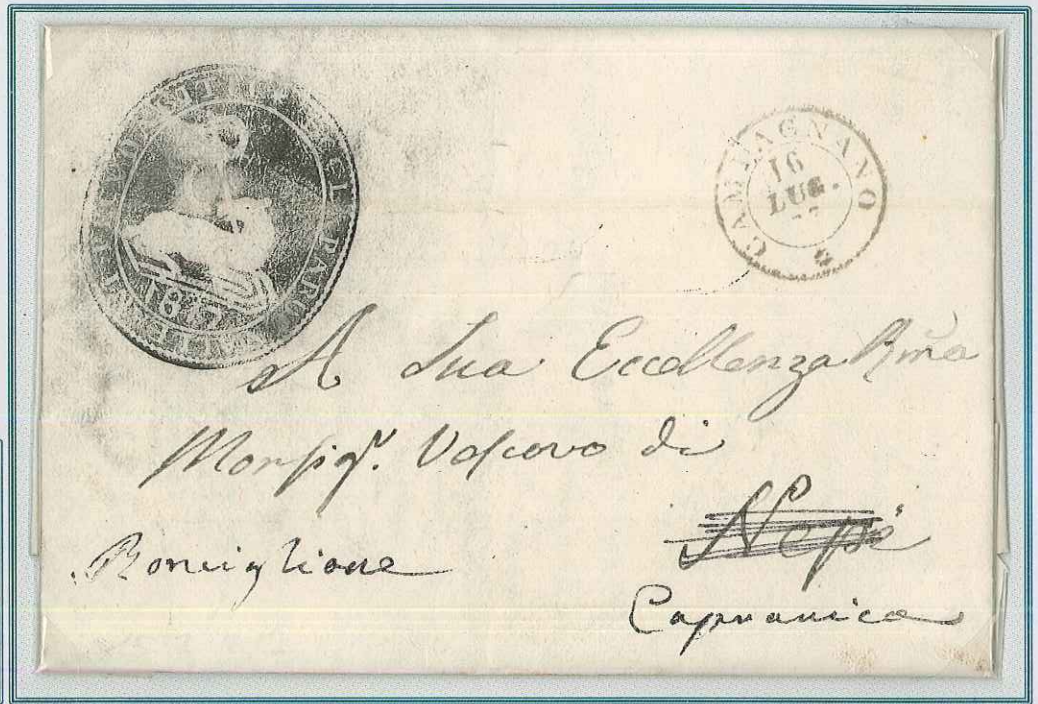 CAMPAGNANO
16
LUG.
1847
A Sua Eccellenza Rma
Monsigr. Vescovo di
Nepi
Ronciglione
Capranica